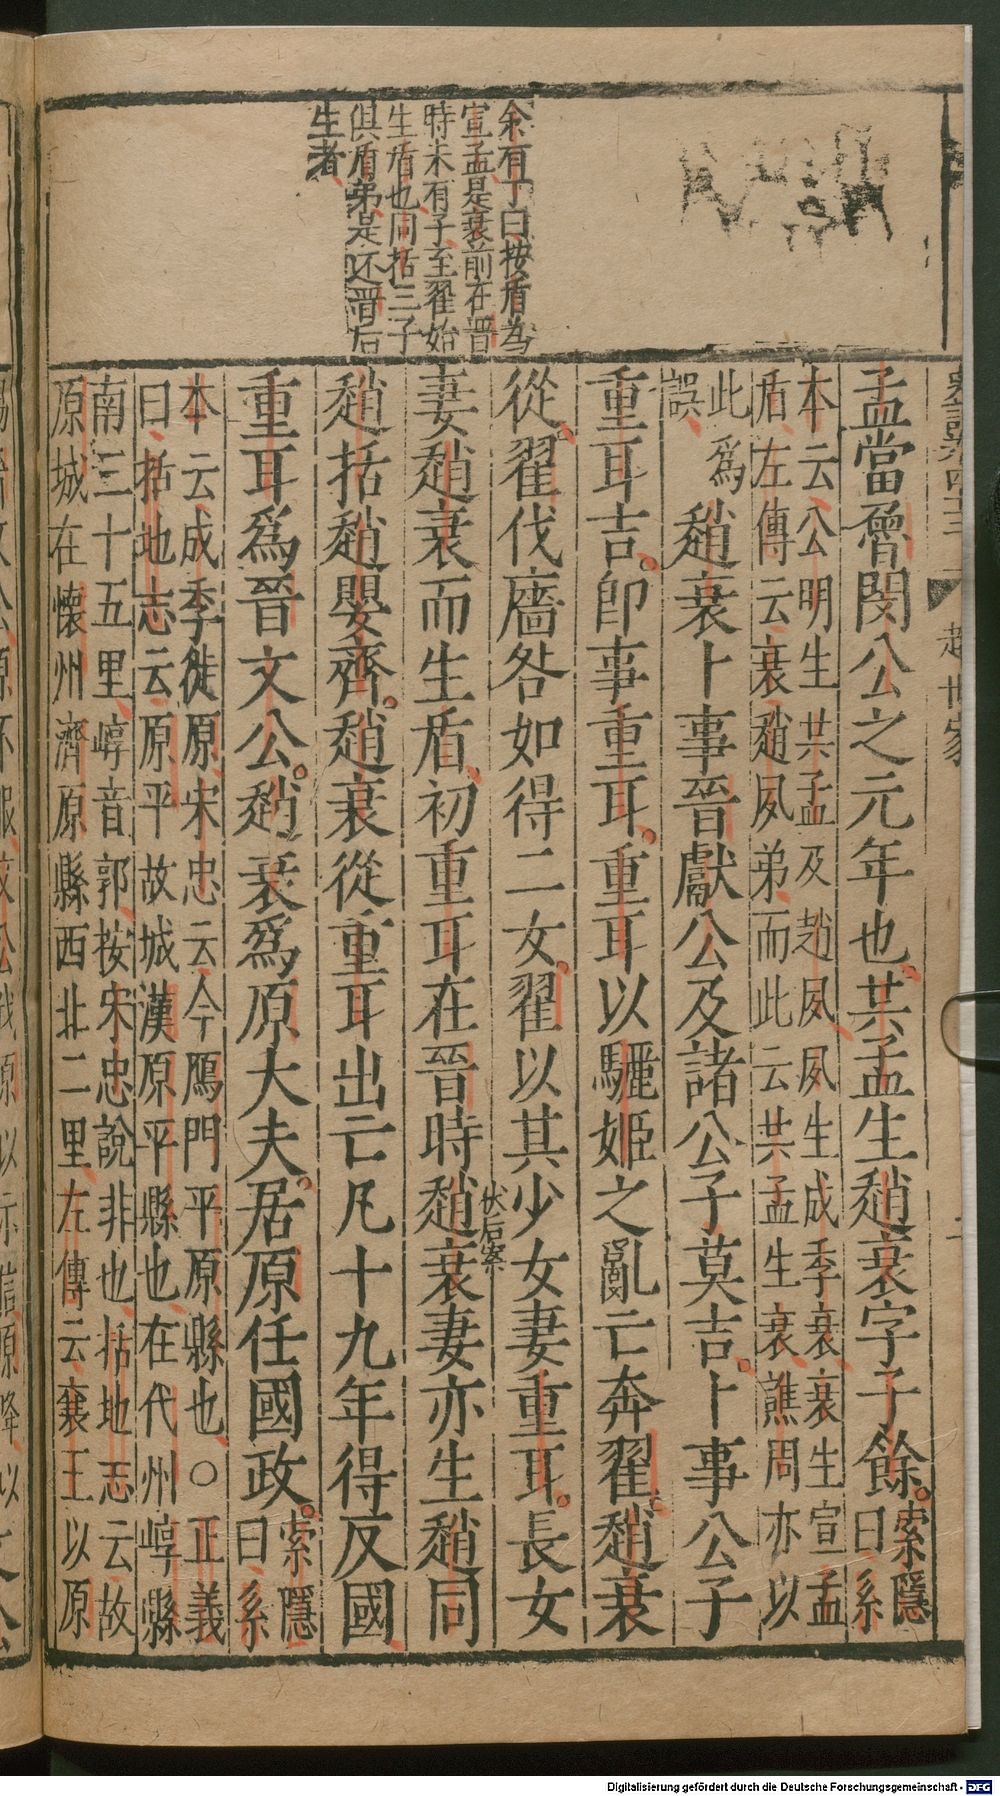 余有丁曰按盾為
宣孟是衰前在晉
時未有子至翟始
生盾也同括三子
俱盾弟是还晉后
生者
趙世家
孟當魯閔公之元年也共孟生趙衰字子餘索隱
曰系
本云公明生共孟及趙夙夙生成季衰衰生宣孟
盾左傳云衰趙夙弟而此云共孟生衰譙周亦以
此爲
誤
趙衰卜事晉獻公及諸公子莫吉卜事公子
重耳吉卽事重耳重耳以驪姬之亂亡奔翟趙衰
從翟伐廧咎如得二女翟以其少女妻重耳長女
妻趙衰而生盾初重耳在晉時趙衰妻亦生趙同
趙括趙嬰齊趙衰從重耳出亡凡十九年得反國
重耳爲晉文公趙衰爲原大夫居原任國政索隱
曰系
本云成季徙原宋忠云今鴈門平原縣也○正義
曰括地志云原平故城漢原平縣也在代州崞縣
南三十五里崞音郭按宋忠說非也括地志云故
原城在懷州濟原縣西北二里左傳云襄王以原
Digitalisierung gefördert durch die Deutsche Forschungsgemeinschaft - DFG